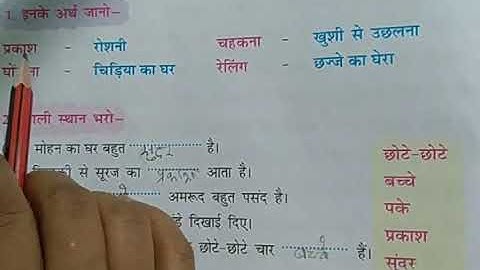 1. इनके अर्थ जानो–
प्रकाश - रोशनी चहकना - खुशी से उछलना
चिड़िया का घर रेलिंग - छज्जे का घेरा
स्थान भरो–
मोहन का घर बहुत सुंदर है।
से सूरज का प्रकाश आता है।
अमरूद बहुत पसंद है।
दिखाई दिए।
छोटे-छोटे चार बच्चे हैं।
छोटे-छोटे
बच्चे
पके
प्रकाश
सुंदर